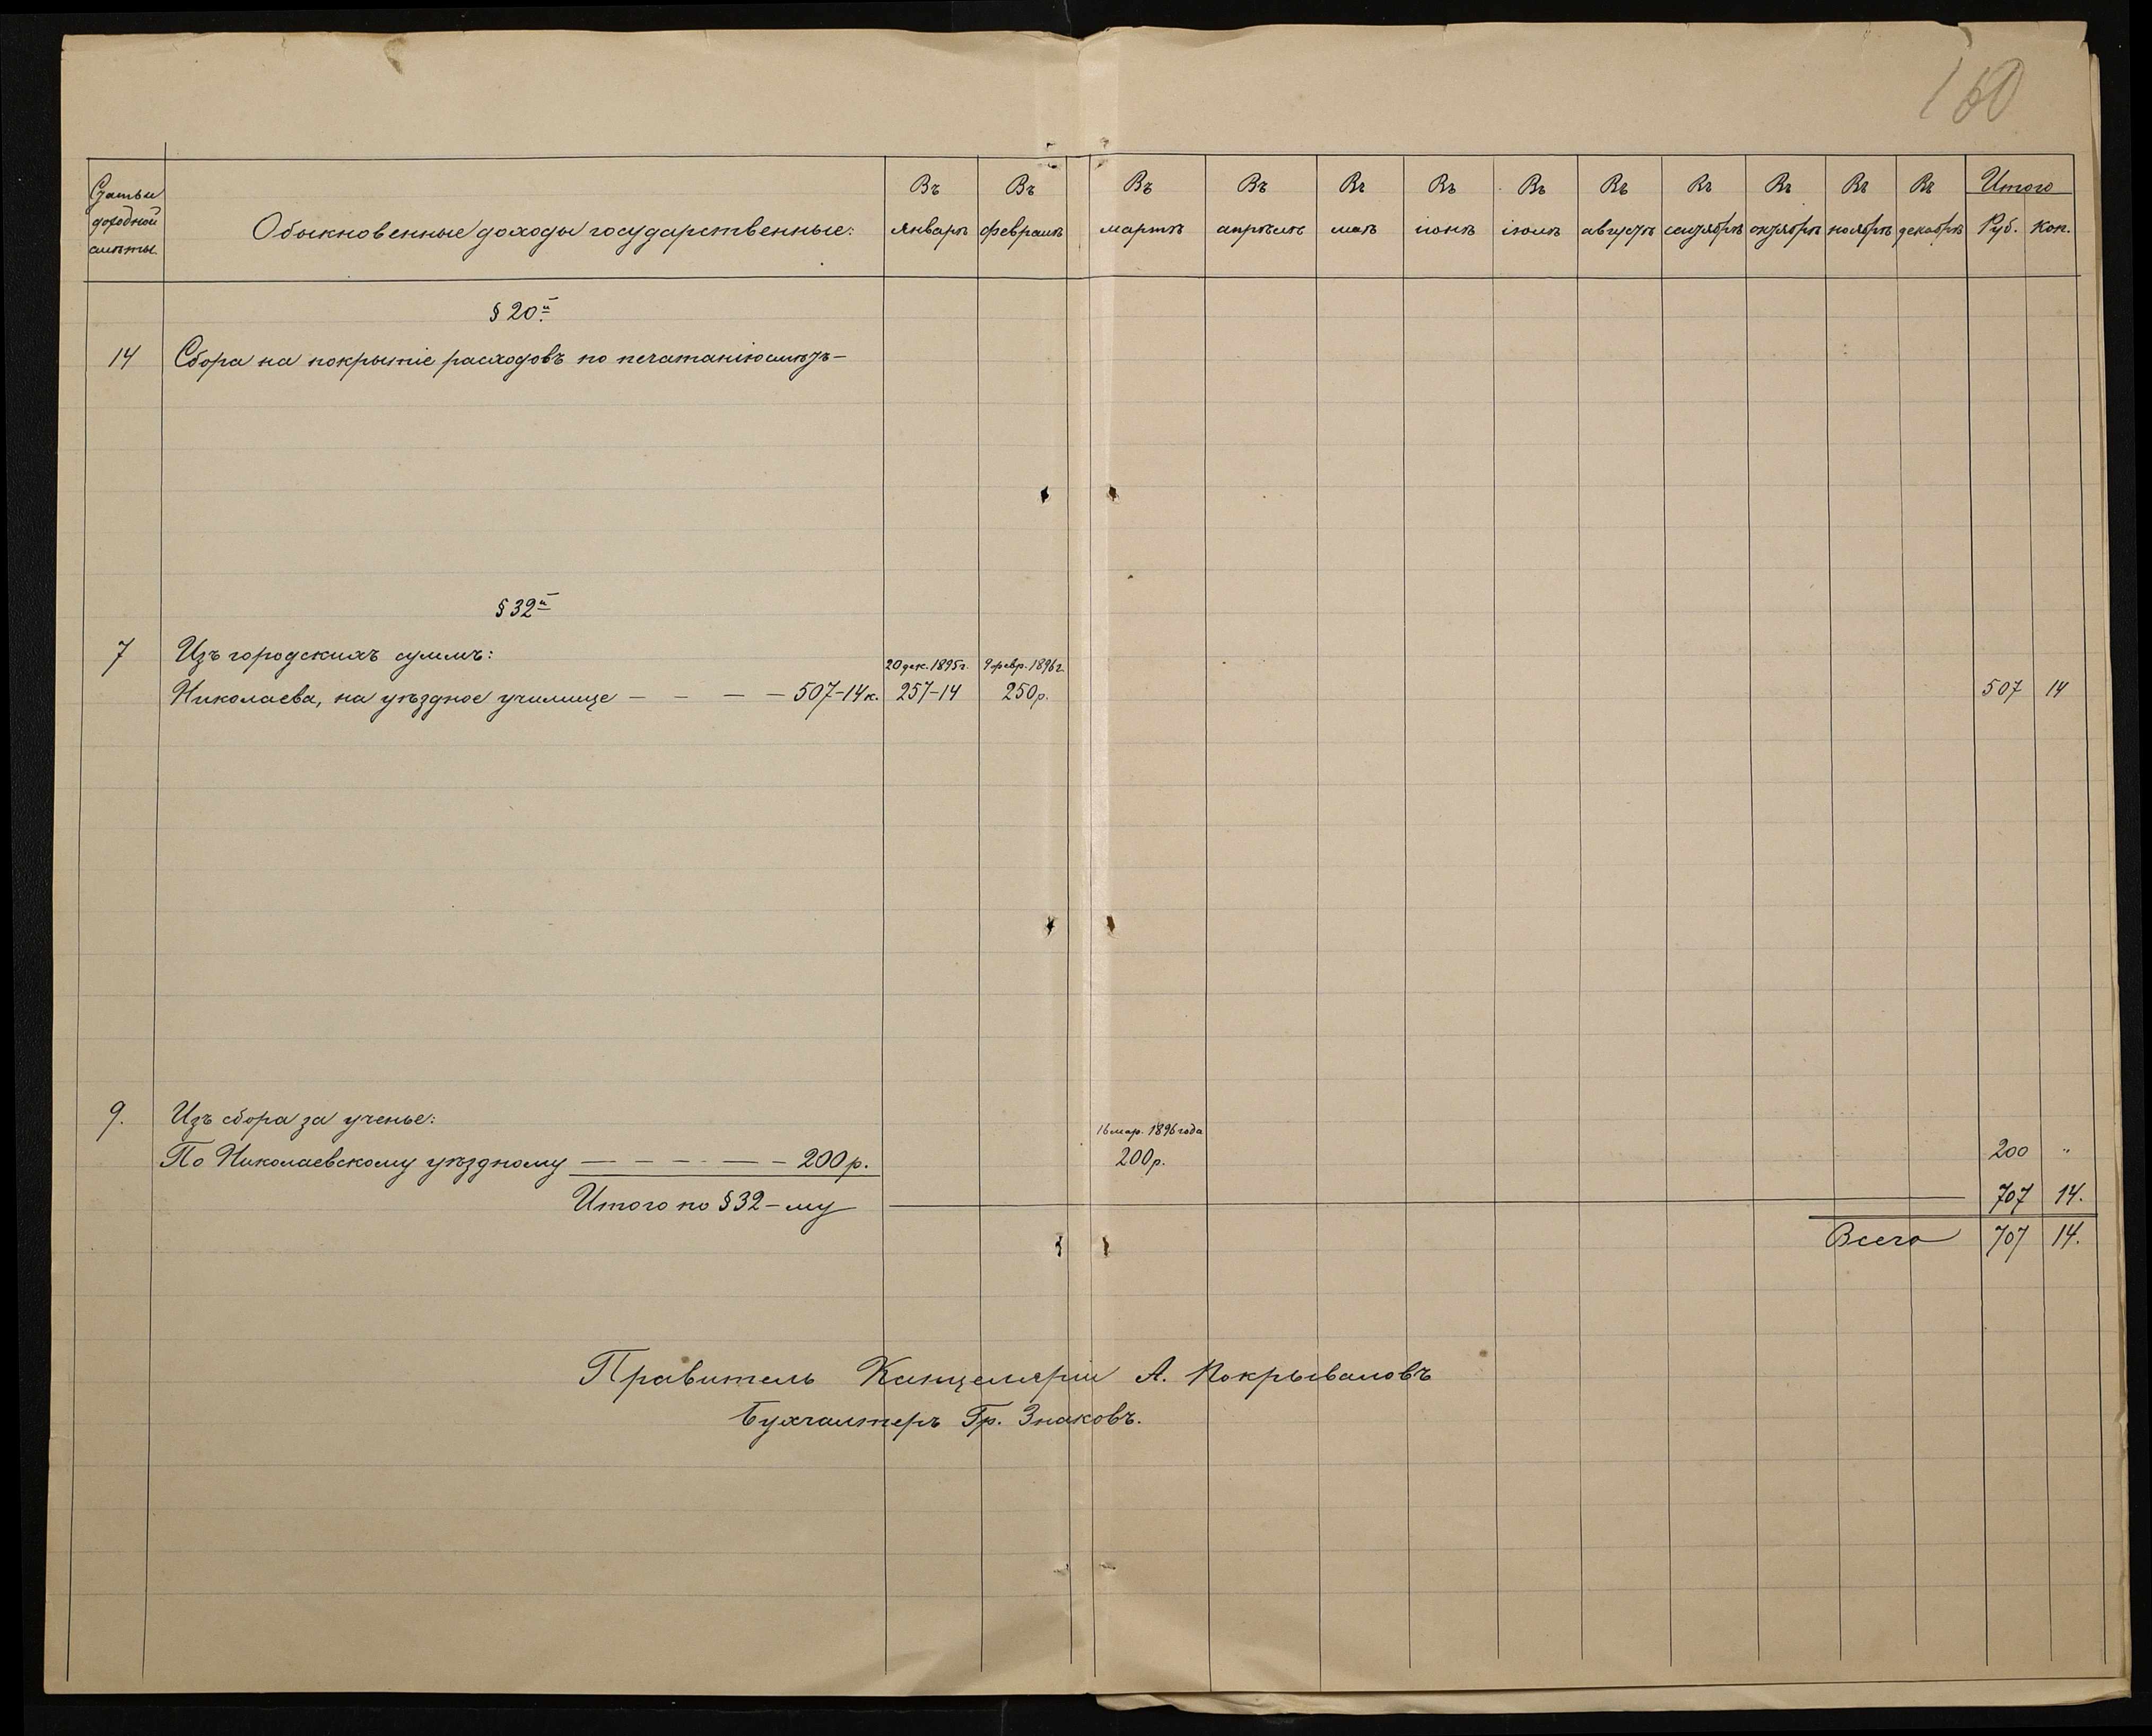 160
Статьи
доходной
смѣты.
Обыкновенные доходы государственные:
Въ январѣ
Въ февралѣ
Въ мартѣ
Въ апрѣлѣ
Въ маѣ
Въ іюнѣ
Въ іюлѣ
Въ августѣ
Въ сентябрѣ
Въ октябрѣ
Въ ноябрѣ
Въ декабрѣ
Итого
Руб. Коп.
§ 20й
14 Сбора на покрытіе расходовъ по печатанію смѣтъ —
§ 32й
7 Изъ городскихъ суммъ:
20 дек. 1895г. 9 февр. 1896г.
Николаева, на уѣздное училище — — — — 507-14к. 257-14 250р. 507 14
9. Изъ сбора за ученье:
16 мар. 1896 года
По Николаевскому уѣздному — — — — — 200р. 200р. 200 "
Итого по § 32-му 707 14.
Всего 707 14.
Правитель Канцеляріи А. Покрываловъ
Бухгалтеръ Гр. Знаковъ.